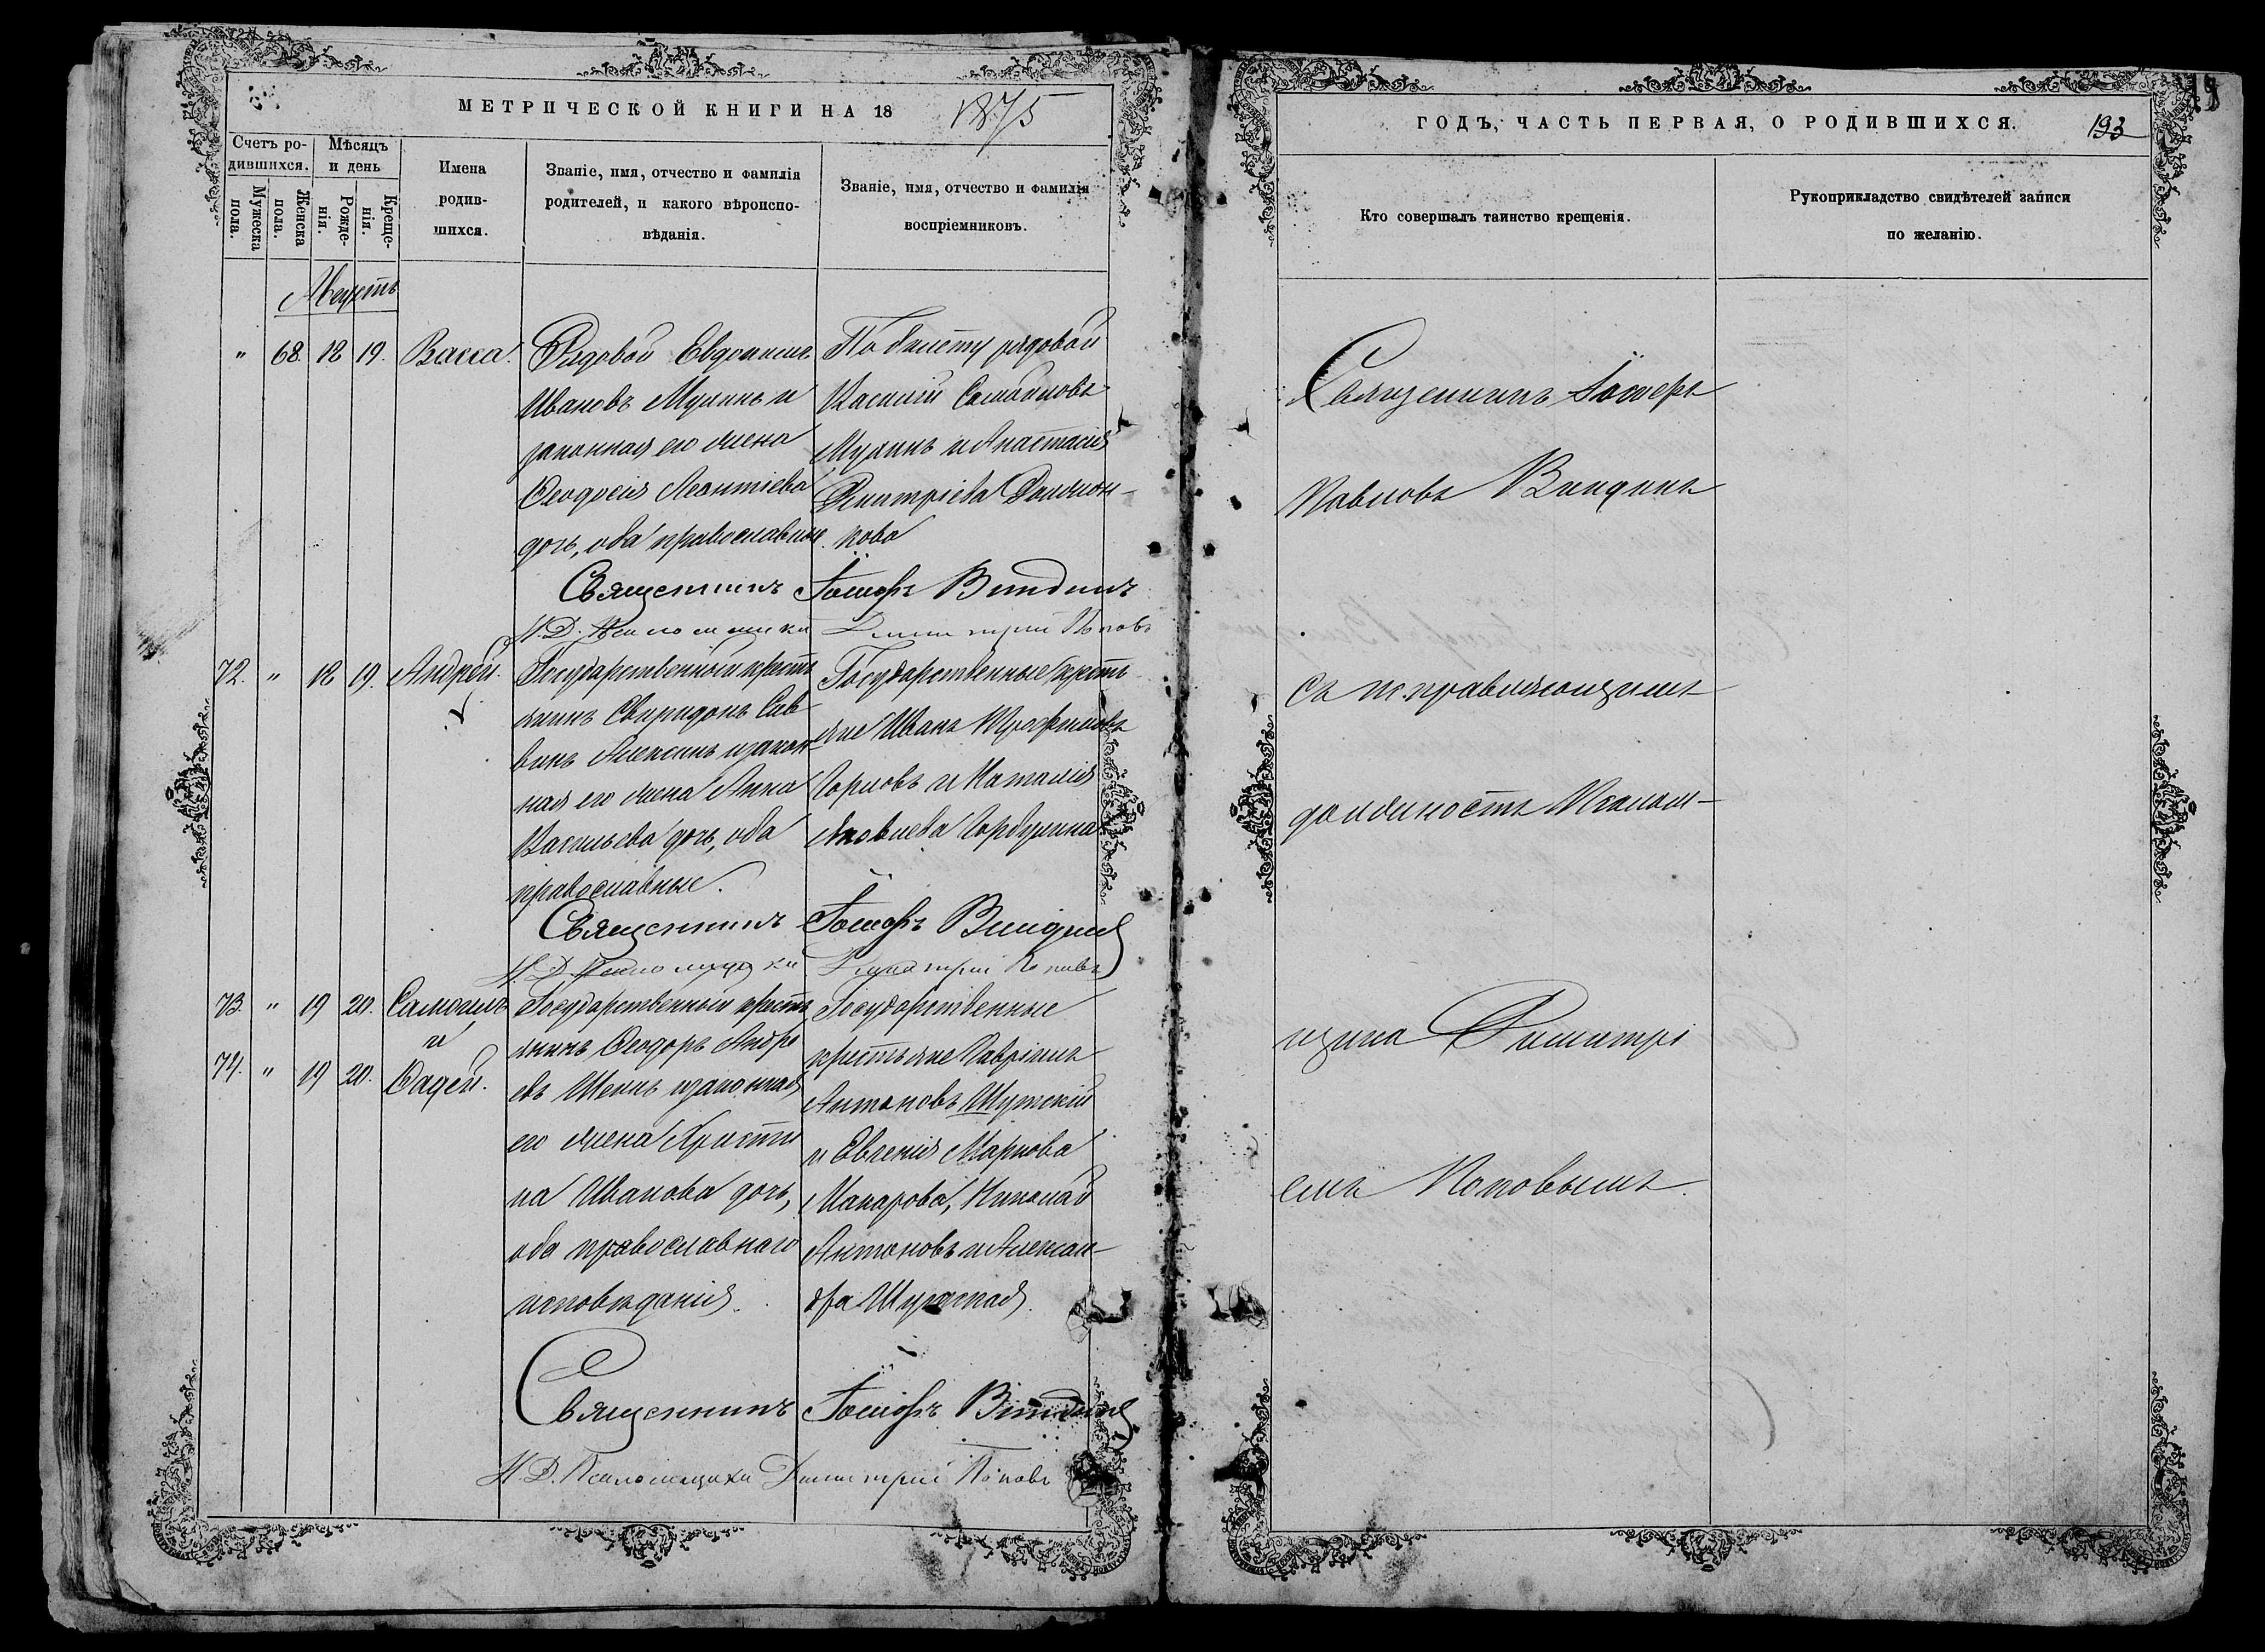 МЕТРИЧЕСКОЙ КНИГИ НА 18 1875
Счетъ ро-
дившихся.
Мужеска
пола.
Женска
пола.
Мѣсяцъ
и день
Рожде-
нія.
Креще-
нія.
Имена
родив-
шихся.
Званіе, имя, отчество и фамилія
родителей, и какого вѣроиспо-
вѣданія.
Званіе, имя, отчество и фамилія
воспріемниковъ.
Августъ
" 68 18 19. Васса.
Рядовой
Ивановъ Мулинъ и
законная его жена
Ѳеодосія Леонтіева
дочь, оба православные.
По билету рядовой
Василій
Мулинъ и Анастасія
Димитріева
кова
Священникъ Іосифъ Виндинъ
И. Д. Псаломщика Димитрій Поповъ
72. " 18 19. Андрей.
Государственный кресть
янинъ Свиридонъ Сав
винъ Алексинъ и закон
ная его жена Анна
Васильева дочь, оба
православные.
Государственные кресть
яне Иванъ
Горловъ и Наталія
Яковлева Горбунина
Священникъ Іосифъ Виндинъ
И. Д. Псаломщика Димитрій Поповъ
73. " 19 20. Самоилъ
и
74. " 19 20. Ѳадей.
Государственный кресть
янинъ Ѳеодоръ Андре
евъ Шеинъ и законная
его жена Христи
на Иванова дочь,
оба православнаго
исповѣданія.
Государственные
крестьяне Гавріилъ
Антоновъ Шутскій
и Евгенія Маркова
Макарова, Николай
Антоновъ и Алексан-
дра
Священникъ Іосифъ Виндинъ
И. Д. Псаломщика Димитрій Поповъ
ГОДЪ, ЧАСТЬ ПЕРВАЯ, О РОДИВШИХСЯ. 193
Кто совершалъ таинство крещенія.
Рукоприкладство свидѣтелей записи
по желанію.
Священникъ Іосифъ
Павловъ Виндинъ
съ исправляющимъ
должность Псалом-
щика Димитрі
емъ Поповымъ.